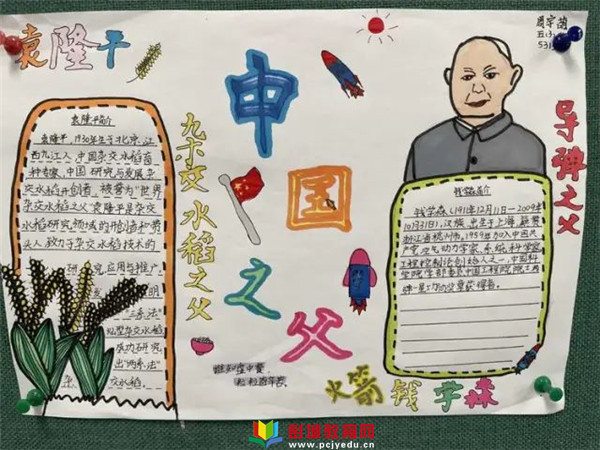 袁隆平
周宇萌
五(3)
袁隆平简介
袁隆平,1930年生于北京,江
西九江人,中国杂交水稻育
种专家,中国研究与发展杂
交水稻开创者,被誉为“世界
杂交水稻之父”袁隆平是杂交
水稻研究领域的开创者和带
头人,致力于杂交水稻技术的
研究,应用与推广,
明
“三系法”
籼型杂交水稻
成功研究
出“两系法”
杂交水稻.
杂交水稻之父
申国之父
谁知盘中餐
粒粒皆辛苦
导弹之父
钱学森简介
钱学森(1911年12月11日—2009年
10月31日),汉族,出生于上海,籍贯
浙江省杭州市,1959年加入中国共
产党,空气动力学家,系统科学家
工程控制论创始人之一,中国科
学院学部委员中国工程院院士两
弹一星功勋奖章获得者。
火箭钱学森
创湖教育网
www.pcjyedu.cn